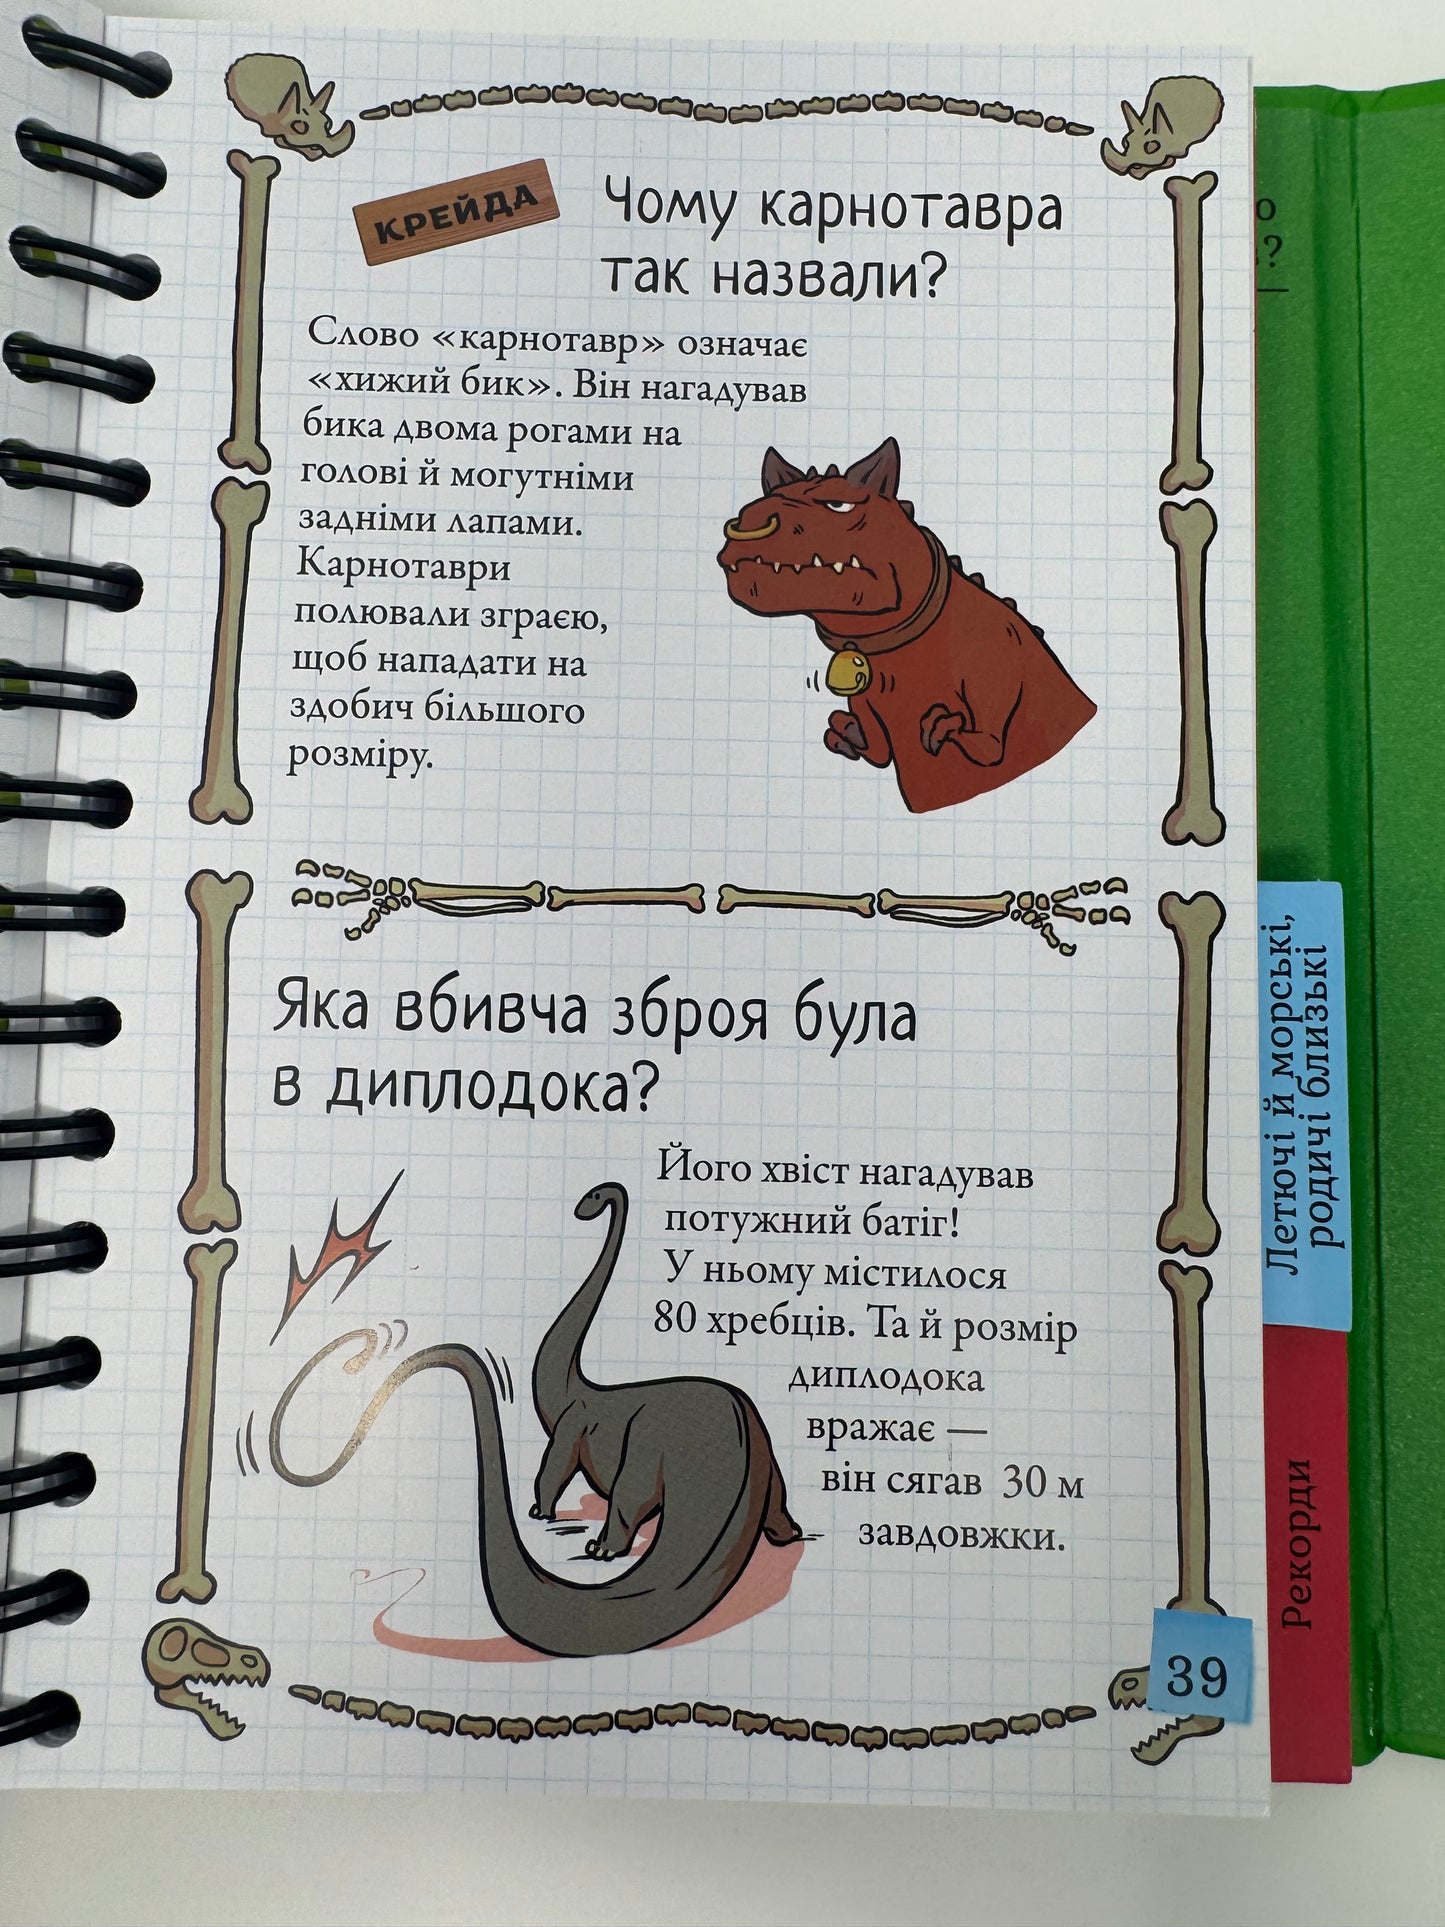 КРЕЙДА
Чому карнотавра
так назвали?
Слово «карнотавр» означає
«хижий бик». Він нагадував
бика двома рогами на
голові й могутніми
задніми лапами.
Карнотаври
полювали зграєю,
щоб нападати на
здобич більшого
розміру.
Яка вбивча зброя була
в диплодока?
Його хвіст нагадував
потужний батіг!
У ньому містилося
80 хребців. Та й розмір
диплодока
вражає —
він сягав 30 м
завдовжки.
39
Летючі й морські,
родичі близькі
Рекорди